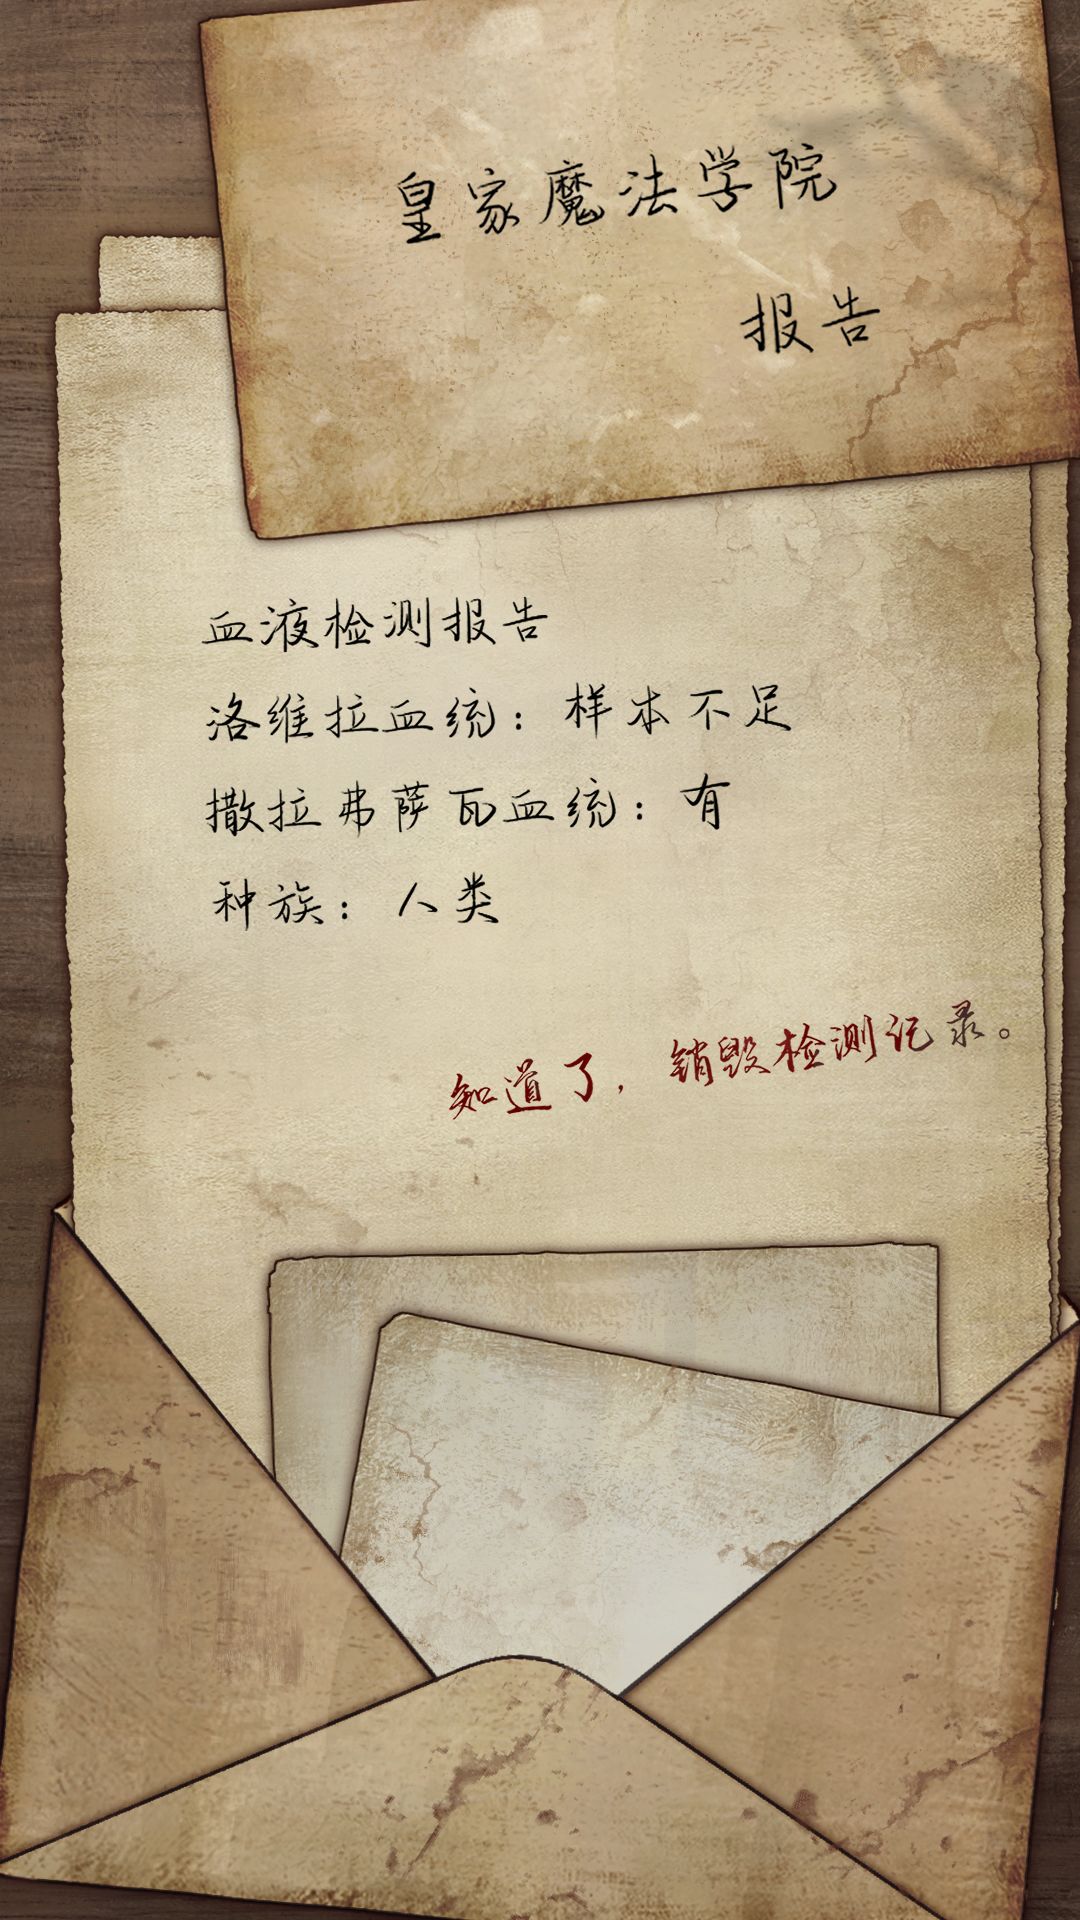 皇家魔法学院
报告
血液检测报告
洛维拉血统：样本不足
撒拉弗萨瓦血统：有
种族：人类
知道了，销毁检测记录。